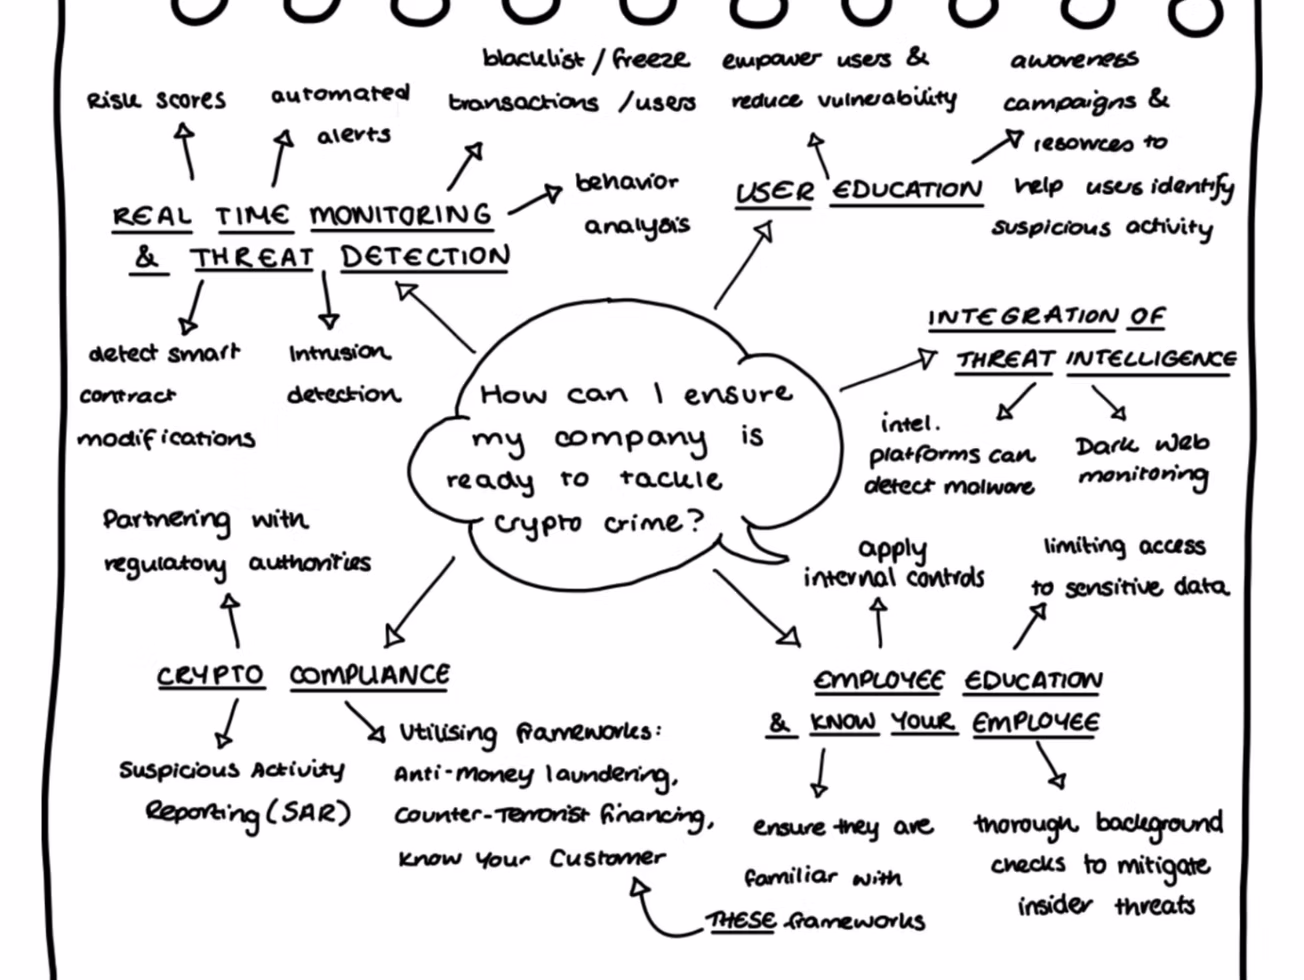 Risk scores
automated
alerts
blacklist / freeze
transactions / users
behavior
analysis
REAL TIME MONITORING
& THREAT DETECTION
detect smart
contract
modifications
Intrusion
detection
empower users &
reduce vulnerability
awareness
campaigns &
resources to
help users identify
suspicious activity
USER EDUCATION
INTEGRATION OF
THREAT INTELLIGENCE
intel.
platforms can
detect malware
Dark Web
monitoring
How can I ensure
my company is
ready to tackle
crypto crime?
Partnering with
regulatory authorities
CRYPTO COMPLIANCE
Suspicious Activity
Reporting (SAR)
Utilising frameworks:
Anti-Money laundering,
Counter-Terrorist financing,
Know Your Customer
apply
internal controls
limiting access
to sensitive data
EMPLOYEE EDUCATION
& KNOW YOUR EMPLOYEE
ensure they are
familiar with
THESE frameworks
thorough background
checks to mitigate
insider threats